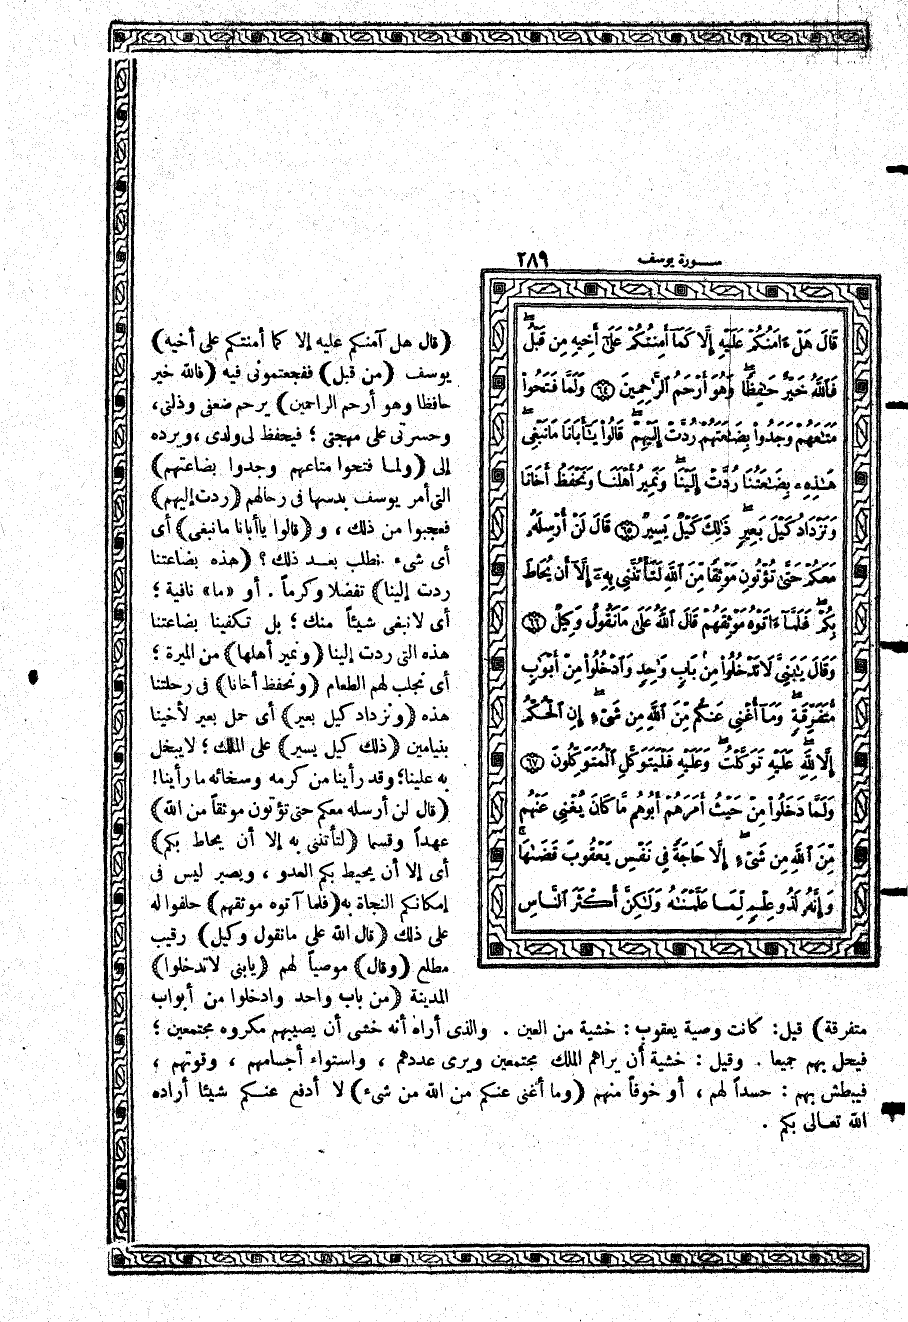 سورة يوسف ٢٨٩
قَالَ هَلْ ءَامَنُكُمْ عَلَيْهِ إِلَّا كَمَآ أَمِنتُكُمْ عَلَىٰٓ أَخِيهِ مِن قَبْلُ
فَٱللَّهُ خَيْرٌ حَٰفِظًا وَهُوَ أَرْحَمُ ٱلرَّٰحِمِينَ ٦٤ وَلَمَّا فَتَحُوا۟
مَتَٰعَهُمْ وَجَدُوا۟ بِضَٰعَتَهُمْ رُدَّتْ إِلَيْهِمْ قَالُوا۟ يَٰٓأَبَانَا مَا نَبْغِى
هَٰذِهِۦ بِضَٰعَتُنَا رُدَّتْ إِلَيْنَا وَنَمِيرُ أَهْلَنَا وَنَحْفَظُ أَخَانَا
وَنَزْدَادُ كَيْلَ بَعِيرٍ ذَٰلِكَ كَيْلٌ يَسِيرٌ ٦٥ قَالَ لَنْ أُرْسِلَهُۥ
مَعَكُمْ حَتَّىٰ تُؤْتُونِ مَوْثِقًا مِّنَ ٱللَّهِ لَتَأْتُنَّنِى بِهِۦٓ إِلَّآ أَن يُحَاطَ
بِكُمْ فَلَمَّآ ءَاتَوْهُ مَوْثِقَهُمْ قَالَ ٱللَّهُ عَلَىٰ مَا نَقُولُ وَكِيلٌ ٦٦
وَقَالَ يَٰبَنِىَّ لَا تَدْخُلُوا۟ مِنۢ بَابٍ وَٰحِدٍ وَٱدْخُلُوا۟ مِنْ أَبْوَٰبٍ
مُّتَفَرِّقَةٍ وَمَآ أُغْنِى عَنكُم مِّنَ ٱللَّهِ مِن شَىْءٍ إِنِ ٱلْحُكْمُ
إِلَّا لِلَّهِ عَلَيْهِ تَوَكَّلْتُ وَعَلَيْهِ فَلْيَتَوَكَّلِ ٱلْمُتَوَكِّلُونَ ٦٧
وَلَمَّا دَخَلُوا۟ مِنْ حَيْثُ أَمَرَهُمْ أَبُوهُم مَّا كَانَ يُغْنِى عَنْهُم
مِّنَ ٱللَّهِ مِن شَىْءٍ إِلَّا حَاجَةً فِى نَفْسِ يَعْقُوبَ قَضَىٰهَا
وَإِنَّهُۥ لَذُو عِلْمٍ لِّمَا عَلَّمْنَٰهُ وَلَٰكِنَّ أَكْثَرَ ٱلنَّاسِ
(قال هل آمنكم عليه إلا كما أمنتكم على أخيه)
يوسف (من قبل) ففجعتمونى فيه (فالله خير
حافظا وهو أرحم الراحمين) يرحم ضعفى وذلتى،
وحسرتى على مهجتى؛ فيحفظ لى ولدى، ويرده
إلى (ولما فتحوا متاعهم وجدوا بضاعتهم)
التى أمر يوسف بدسها فى رحالهم (ردت إليهم)
فعجبوا من ذلك، و (قالوا ياأبانا مانبغى) أى
أى شىء نطلب بعد ذلك؟ (هذه بضاعتنا
ردت إلينا) تفضلا وكرماً. أو «ما» نافية؛
أى لانبغى شيئاً منك؛ بل تكفينا بضاعتنا
هذه التى ردت إلينا (ونمير أهلها) من الميرة؛
أى نجلب لهم الطعام (ونحفظ أخانا) فى رحلتنا
هذه (ونزداد كيل بعير) أى حمل بعير لأخينا
بنيامين (ذلك كيل يسير) على الملك؛ لايبخل
به علينا؛ وقد رأينا من كرمه وسخائه ما رأينا!
(قال لن أرسله معكم حتى تؤتون موثقاً من الله)
عهداً وقسما (لتأتننى به إلا أن يحاط بكم)
أى إلا أن يحيط بكم العدو، ويصير ليس فى
إمكانكم النجاة به (فلما آتوه موثقهم) حلفوا له
على ذلك (قال الله على مانقول وكيل) رقيب
مطلع (وقال) موصياً لهم (يابنى لاتدخلوا)
المدينة (من باب واحد وادخلوا من أبواب
متفرقة) قيل: كانت وصية يعقوب: خشية من العين. والذى أراه أنه خشى أن يصيبهم مكروه مجتمعين؛
فيحل بهم جميعا. وقيل: خشية أن يراهم الملك مجتمعين ويرى عددهم، واستواء أجسامهم، وقوتهم،
فيبطش بهم: حسداً لهم، أو خوفاً منهم (وما أغنى عنكم من الله من شىء) لا أدفع عنكم شيئا أراده
الله تعالى بكم.